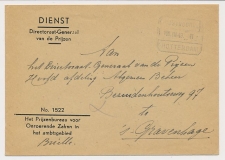 DIENST
Directoraat-Generaal
van de Prijzen
Aan
het Directoraat-Generaal van de Prijzen
Hoofd afdeling Algemen Beheer
Bezuidenhoutseweg 97
te
's-Gravenhage
No. 1522
Het Prijzenbureau voor
Onroerende Zaken in
het ambtsgebied
Brielle